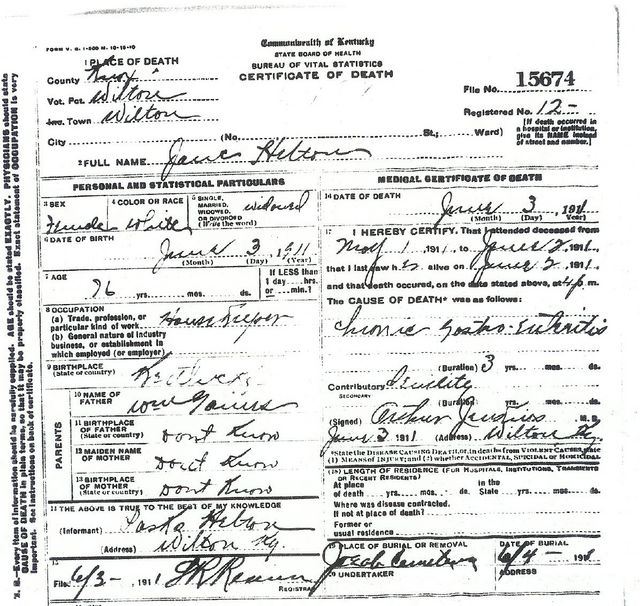 FORM V. S. 1-500 M. 10-10-10
Commonwealth of Kentucky
STATE BOARD OF HEALTH
BUREAU OF VITAL STATISTICS
CERTIFICATE OF DEATH
1 PLACE OF DEATH
County Knox
Vot. Pct. Wilton
Inc. Town Wilton
City (No. St.; Ward)
File No. 15674
Registered No. 12-
[If death occurred in a hospital or institution, give its NAME instead of street and number.]
2 FULL NAME Jane Helton
PERSONAL AND STATISTICAL PARTICULARS
3 SEX Female
4 COLOR OR RACE White
5 SINGLE, MARRIED, WIDOWED, OR DIVORCED (Write the word) Widowed
6 DATE OF BIRTH June 3 1911
(Month) (Day) (Year)
7 AGE 76 yrs. mos. ds.
If LESS than 1 day....hrs. or....min.?
8 OCCUPATION
(a) Trade, profession, or particular kind of work House Keeper
(b) General nature of industry business, or establishment in which employed (or employer)
9 BIRTHPLACE (State or country) Kentucky
PARENTS
10 NAME OF FATHER Wm
11 BIRTHPLACE OF FATHER (State or country) Dont Know
12 MAIDEN NAME OF MOTHER Dont Know
13 BIRTHPLACE OF MOTHER (State or country) Dont Know
14 THE ABOVE IS TRUE TO THE BEST OF MY KNOWLEDGE
(Informant) Helton
(Address) Wilton Ky
15
Filed 6/3- 1911
REGISTRAR
MEDICAL CERTIFICATE OF DEATH
16 DATE OF DEATH June 3 1911
(Month) (Day) (Year)
17 I HEREBY CERTIFY, That I attended deceased from
May 1 1911 to June 2 1911,
that I last saw h alive on June 2 1911,
and that death occured, on the date stated above, at 4 p m.
The CAUSE OF DEATH* was as follows:
Chronic Gastro-Enteritis
(Duration) 3 yrs. mos. ds.
Contributory Senility
SECONDARY
(Duration) yrs. mos. ds.
(Signed) Arthur Jenkins M. D.
June 3 1911 (Address) Wilton Ky.
*State the DISEASE CAUSING DEATH, or, in deaths from VIOLENT CAUSES, state (1) MEANS OF INJURY; and (2) whether ACCIDENTAL, SUICIDAL or HOMICIDAL
18 LENGTH OF RESIDENCE (FOR HOSPITALS, INSTITUTIONS, TRANSIENTS OR RECENT RESIDENTS)
At place of death yrs. mos. ds. In the State yrs. mos. ds.
Where was disease contracted,
If not at place of death?
Former or usual residence
19 PLACE OF BURIAL OR REMOVAL Cemetery
DATE OF BURIAL 6/4- 1911
20 UNDERTAKER
ADDRESS
N. B.—Every item of information should be carefully supplied. AGE should be stated EXACTLY. PHYSICIANS should state
CAUSE OF DEATH in plain terms, so that it may be properly classified. Exact statement of OCCUPATION is very
important. See instructions on back of certificate.